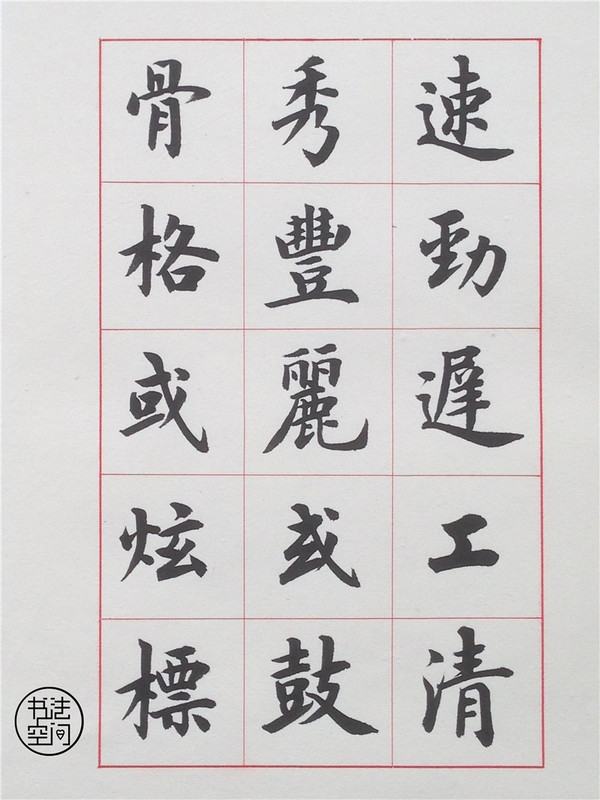 速勁遲工清
秀豐麗或鼓
骨格或炫標
书法
空间